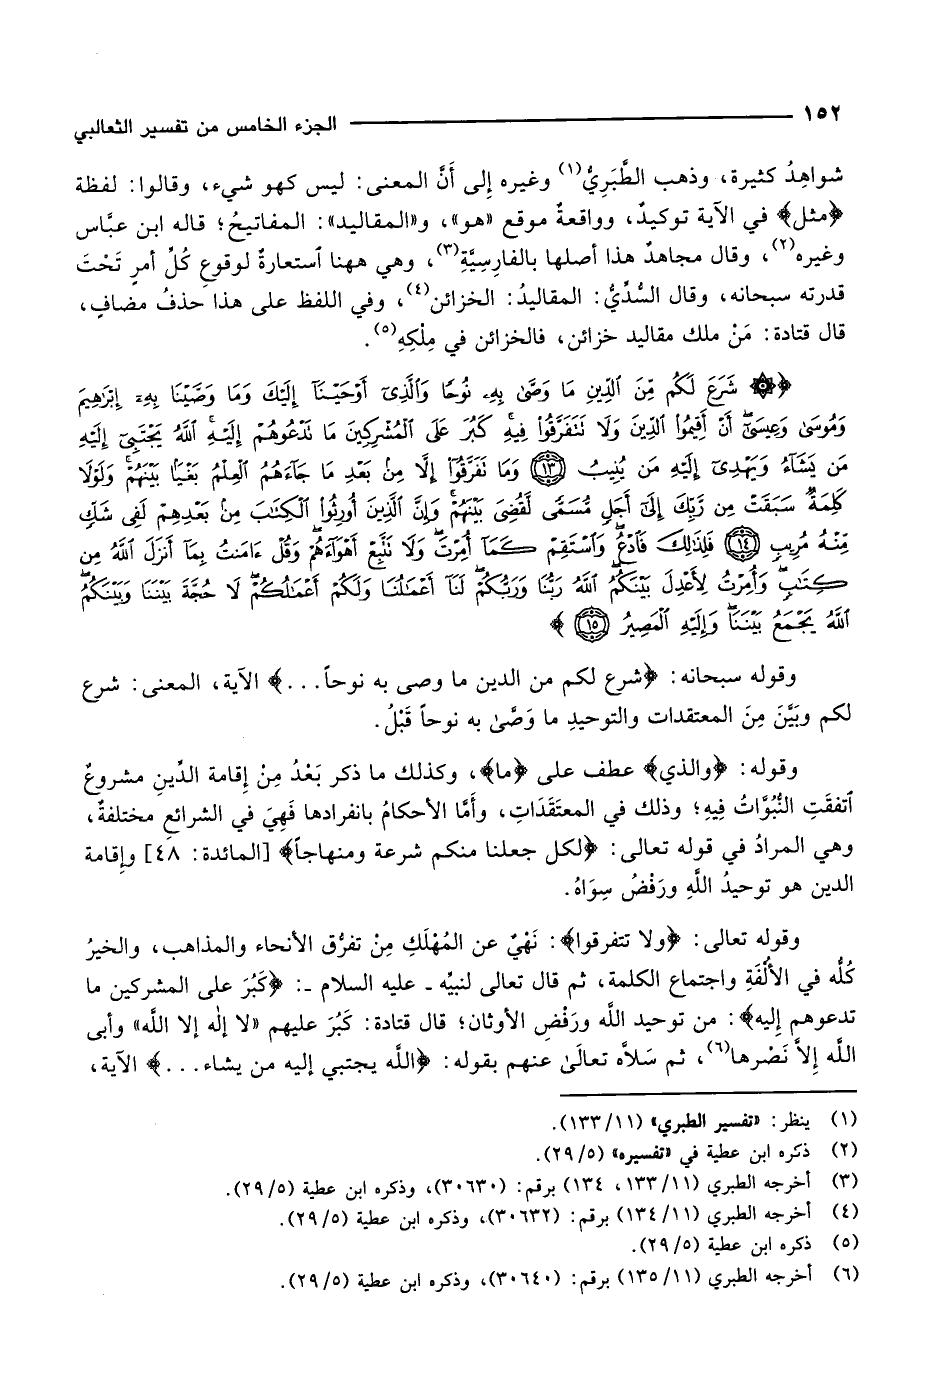 ١٥٢ ــــــــــــــــــــ الجزء الخامس من تفسير الثعالبي
شواهِدُ كثيرة، وذهب الطَّبَرِيُّ(١) وغيره إلى أَنَّ المعنى: ليس كهو شيء، وقالوا: لفظة
﴿مثل﴾ في الآية توكيدٌ، وواقعةٌ موقع «هو»، و«المقاليد»: المفاتيحُ؛ قاله ابن عبَّاس
وغيره(٢)، وقال مجاهدٌ هذا أصلها بالفارِسِيَّةِ(٣)، وهي ههنا ٱستعارةٌ لوقوعِ كُلِّ أمرٍ تَحْتَ
قدرته سبحانه، وقال السُّدِّيُّ: المقاليدُ: الخزائن(٤)، وفي اللفظ على هذا حذفُ مضافٍ،
قال قتادة: مَنْ ملك مقاليد خزائن، فالخزائن في مِلْكِهِ(٥).
﴿۞ شَرَعَ لَكُم مِّنَ ٱلدِّينِ مَا وَصَّىٰ بِهِۦ نُوحًا وَٱلَّذِىٓ أَوْحَيْنَآ إِلَيْكَ وَمَا وَصَّيْنَا بِهِۦٓ إِبْرَٰهِيمَ
وَمُوسَىٰ وَعِيسَىٰٓ أَنْ أَقِيمُوا۟ ٱلدِّينَ وَلَا تَتَفَرَّقُوا۟ فِيهِ كَبُرَ عَلَى ٱلْمُشْرِكِينَ مَا نَدْعُوهُمْ إِلَيْهِ ٱللَّهُ يَجْتَبِىٓ إِلَيْهِ
مَن يَشَآءُ وَيَهْدِىٓ إِلَيْهِ مَن يُنِيبُ ۝١٣ وَمَا تَفَرَّقُوٓا۟ إِلَّا مِنۢ بَعْدِ مَا جَآءَهُمُ ٱلْعِلْمُ بَغْيًۢا بَيْنَهُمْ وَلَوْلَا
كَلِمَةٌ سَبَقَتْ مِن رَّبِّكَ إِلَىٰٓ أَجَلٍ مُّسَمًّى لَّقُضِىَ بَيْنَهُمْ وَإِنَّ ٱلَّذِينَ أُورِثُوا۟ ٱلْكِتَٰبَ مِنۢ بَعْدِهِمْ لَفِى شَكٍّ
مِّنْهُ مُرِيبٍ ۝١٤ فَلِذَٰلِكَ فَٱدْعُ وَٱسْتَقِمْ كَمَآ أُمِرْتَ وَلَا تَتَّبِعْ أَهْوَآءَهُمْ وَقُلْ ءَامَنتُ بِمَآ أَنزَلَ ٱللَّهُ مِن
كِتَٰبٍ وَأُمِرْتُ لِأَعْدِلَ بَيْنَكُمُ ٱللَّهُ رَبُّنَا وَرَبُّكُمْ لَنَآ أَعْمَٰلُنَا وَلَكُمْ أَعْمَٰلُكُمْ لَا حُجَّةَ بَيْنَنَا وَبَيْنَكُمُ
ٱللَّهُ يَجْمَعُ بَيْنَنَا وَإِلَيْهِ ٱلْمَصِيرُ ۝١٥﴾
وقوله سبحانه: ﴿شرع لكم من الدين ما وصى به نوحاً...﴾ الآية، المعنى: شرع
لكم وبَيَّنَ مِنَ المعتقدات والتوحيدِ ما وَصَّىٰ به نوحاً قَبْلُ.
وقوله: ﴿والذي﴾ عطف على ﴿ما﴾، وكذلك ما ذكر بَعْدُ مِنْ إقامة الدِّينِ مشروعٌ
ٱتفقَتِ النُّبُوَّاتُ فِيهِ؛ وذلك في المعتَقَدَاتِ، وأَمَّا الأحكامُ بانفرادها فَهِيَ في الشرائعِ مختلفةٌ،
وهي المرادُ في قوله تعالى: ﴿لكل جعلنا منكم شرعة ومنهاجاً﴾ [المائدة: ٤٨] وإقامة
الدين هو توحيدُ اللَّهِ ورَفْضُ سِوَاهُ.
وقوله تعالى: ﴿ولا تتفرقوا﴾: نَهْيٌ عن المُهْلَكِ مِنْ تفرُّق الأنحاء والمذاهب، والخيرُ
كُلُّه في الأُلْفَةِ واجتماع الكلمة، ثم قال تعالى لنبيِّه ـ عليه السلام ـ: ﴿كَبُرَ على المشركين ما
تدعوهم إليه﴾: من توحيد اللَّه ورَفْضِ الأوثان؛ قال قتادة: كَبُرَ عليهم «لا إلٰه إلا اللَّه» وأبى
اللَّه إلاَّ نَصْرها(٦)، ثم سَلاَّه تعالَىٰ عنهم بقوله: ﴿اللَّه يجتبي إليه من يشاء...﴾ الآية،
(١) ينظر: «تفسير الطبري» (١١/١٣٣).
(٢) ذكره ابن عطية في «تفسيره» (٥/٢٩).
(٣) أخرجه الطبري (١١/١٣٣، ١٣٤) برقم: (٣٠٦٣٠)، وذكره ابن عطية (٥/٢٩).
(٤) أخرجه الطبري (١١/١٣٤) برقم: (٣٠٦٣٢)، وذكره ابن عطية (٥/٢٩).
(٥) ذكره ابن عطية (٥/٢٩).
(٦) أخرجه الطبري (١١/١٣٥) برقم: (٣٠٦٤٠)، وذكره ابن عطية (٥/٢٩).